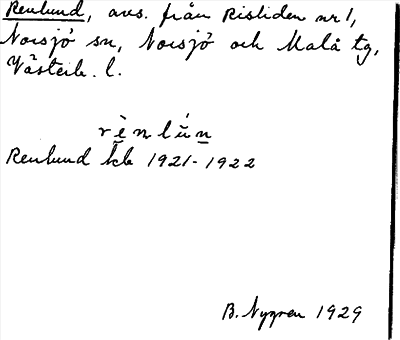 Renlund, avs. från Risliden nr 1,
Norsjö sn, Norsjö och Malå tg,
Västerb. l.
rè̤nlún̲
Renlund kb 1921-1922
B. Nygren 1929